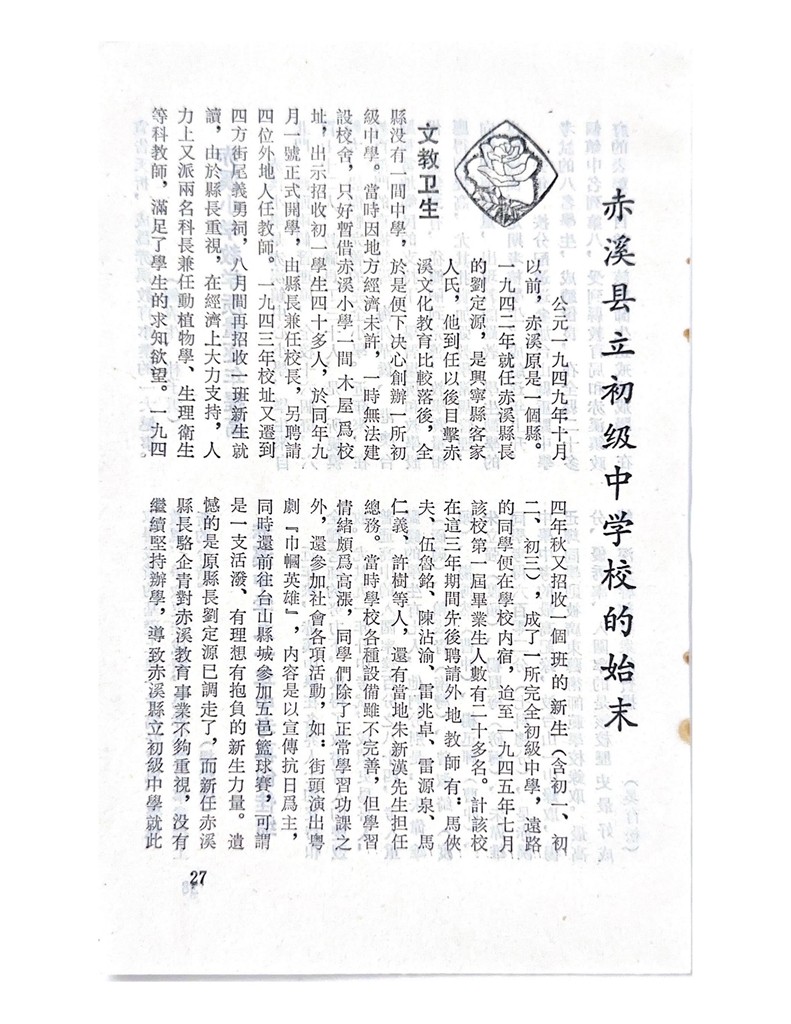 赤溪县立初级中学校的始末
文教卫生
公元一九四九年十月
以前，赤溪原是一個縣。
一九四二年就任赤溪縣長
的劉定源，是興寧縣客家
人氏，他到任以後目擊赤
溪文化教育比較落後，全
縣没有一間中學，於是便下决心創辦一所初
級中學。當時因地方經濟未許，一時無法建
設校舍，只好暫借赤溪小學一間木屋爲校
址，出示招收初一學生四十多人，於同年九
月一號正式開學，由縣長兼任校長，另聘請
四位外地人任教師。一九四三年校址又遷到
四方街尾義勇祠，八月間再招收一班新生就
讀，由於縣長重視，在經濟上大力支持，人
力上又派兩名科長兼任動植物學、生理衛生
等科教師，滿足了學生的求知欲望。一九四
四年秋又招收一個班的新生（含初一、初
二、初三），成了一所完全初級中學，遠路
的同學便在學校内宿，迨至一九四五年七月
該校第一屆畢業生人數有二十多名。計該校
在這三年期間先後聘請外地教師有：馬俠
夫、伍魯銘、陳沾渝、雷兆卓、雷源泉、馬
仁義、許樹等人，還有當地朱新漢先生担任
總務。當時學校各種設備雖不完善，但學習
情緒頗爲高漲，同學們除了正常學習功課之
外，還參加社會各項活動，如：街頭演出粤
劇『巾幗英雄』，内容是以宣傳抗日爲主，
同時還前往台山縣城參加五邑籃球賽，可謂
是一支活潑、有理想有抱負的新生力量。遺
憾的是原縣長劉定源已調走了，而新任赤溪
縣長駱企青對赤溪教育事業不夠重視，没有
繼續堅持辦學，導致赤溪縣立初級中學就此
27